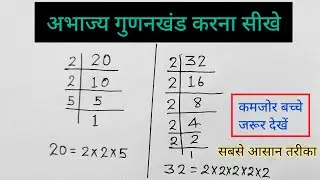 अभाज्य गुणनखंड करना सीखे
2 | 20
2 | 10
5 | 5
1
20 = 2×2×5
2 | 32
2 | 16
2 | 8
2 | 4
2 | 2
1
32 = 2×2×2×2×2
कमजोर बच्चे
जरूर देखें
सबसे आसान तरीका